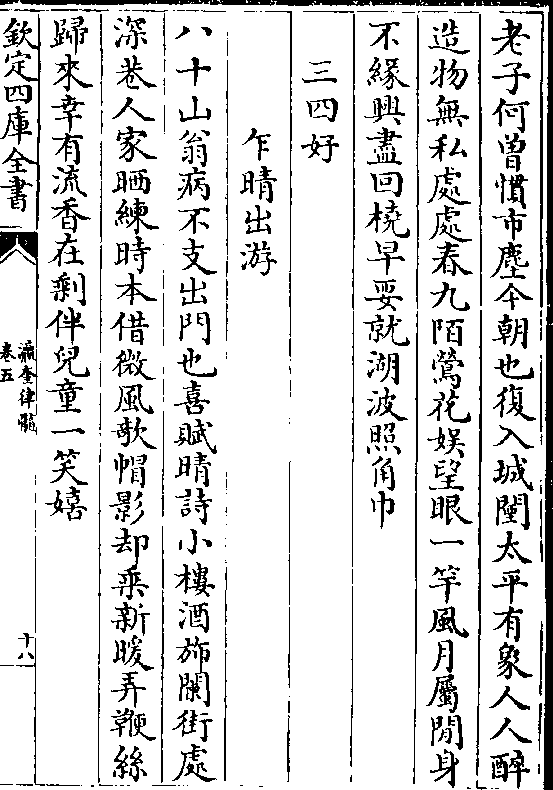 老子何曽慣市塵今朝也復入城闉太平有象人人醉
造物無私處處春九陌鶯花娱望眼一竿風月屬閒身
不緣興盡回橈早要就湖波照角巾
三四好
乍晴出游
八十山翁病不支出門也喜賦晴詩小樓酒斾闌街處
深巷人家晒練時本借微風欹帽影却乘新暖弄鞭絲
歸來幸有流香在剩伴兒童一笑嬉
欽定四庫全書
瀛奎律髓
卷五
十八